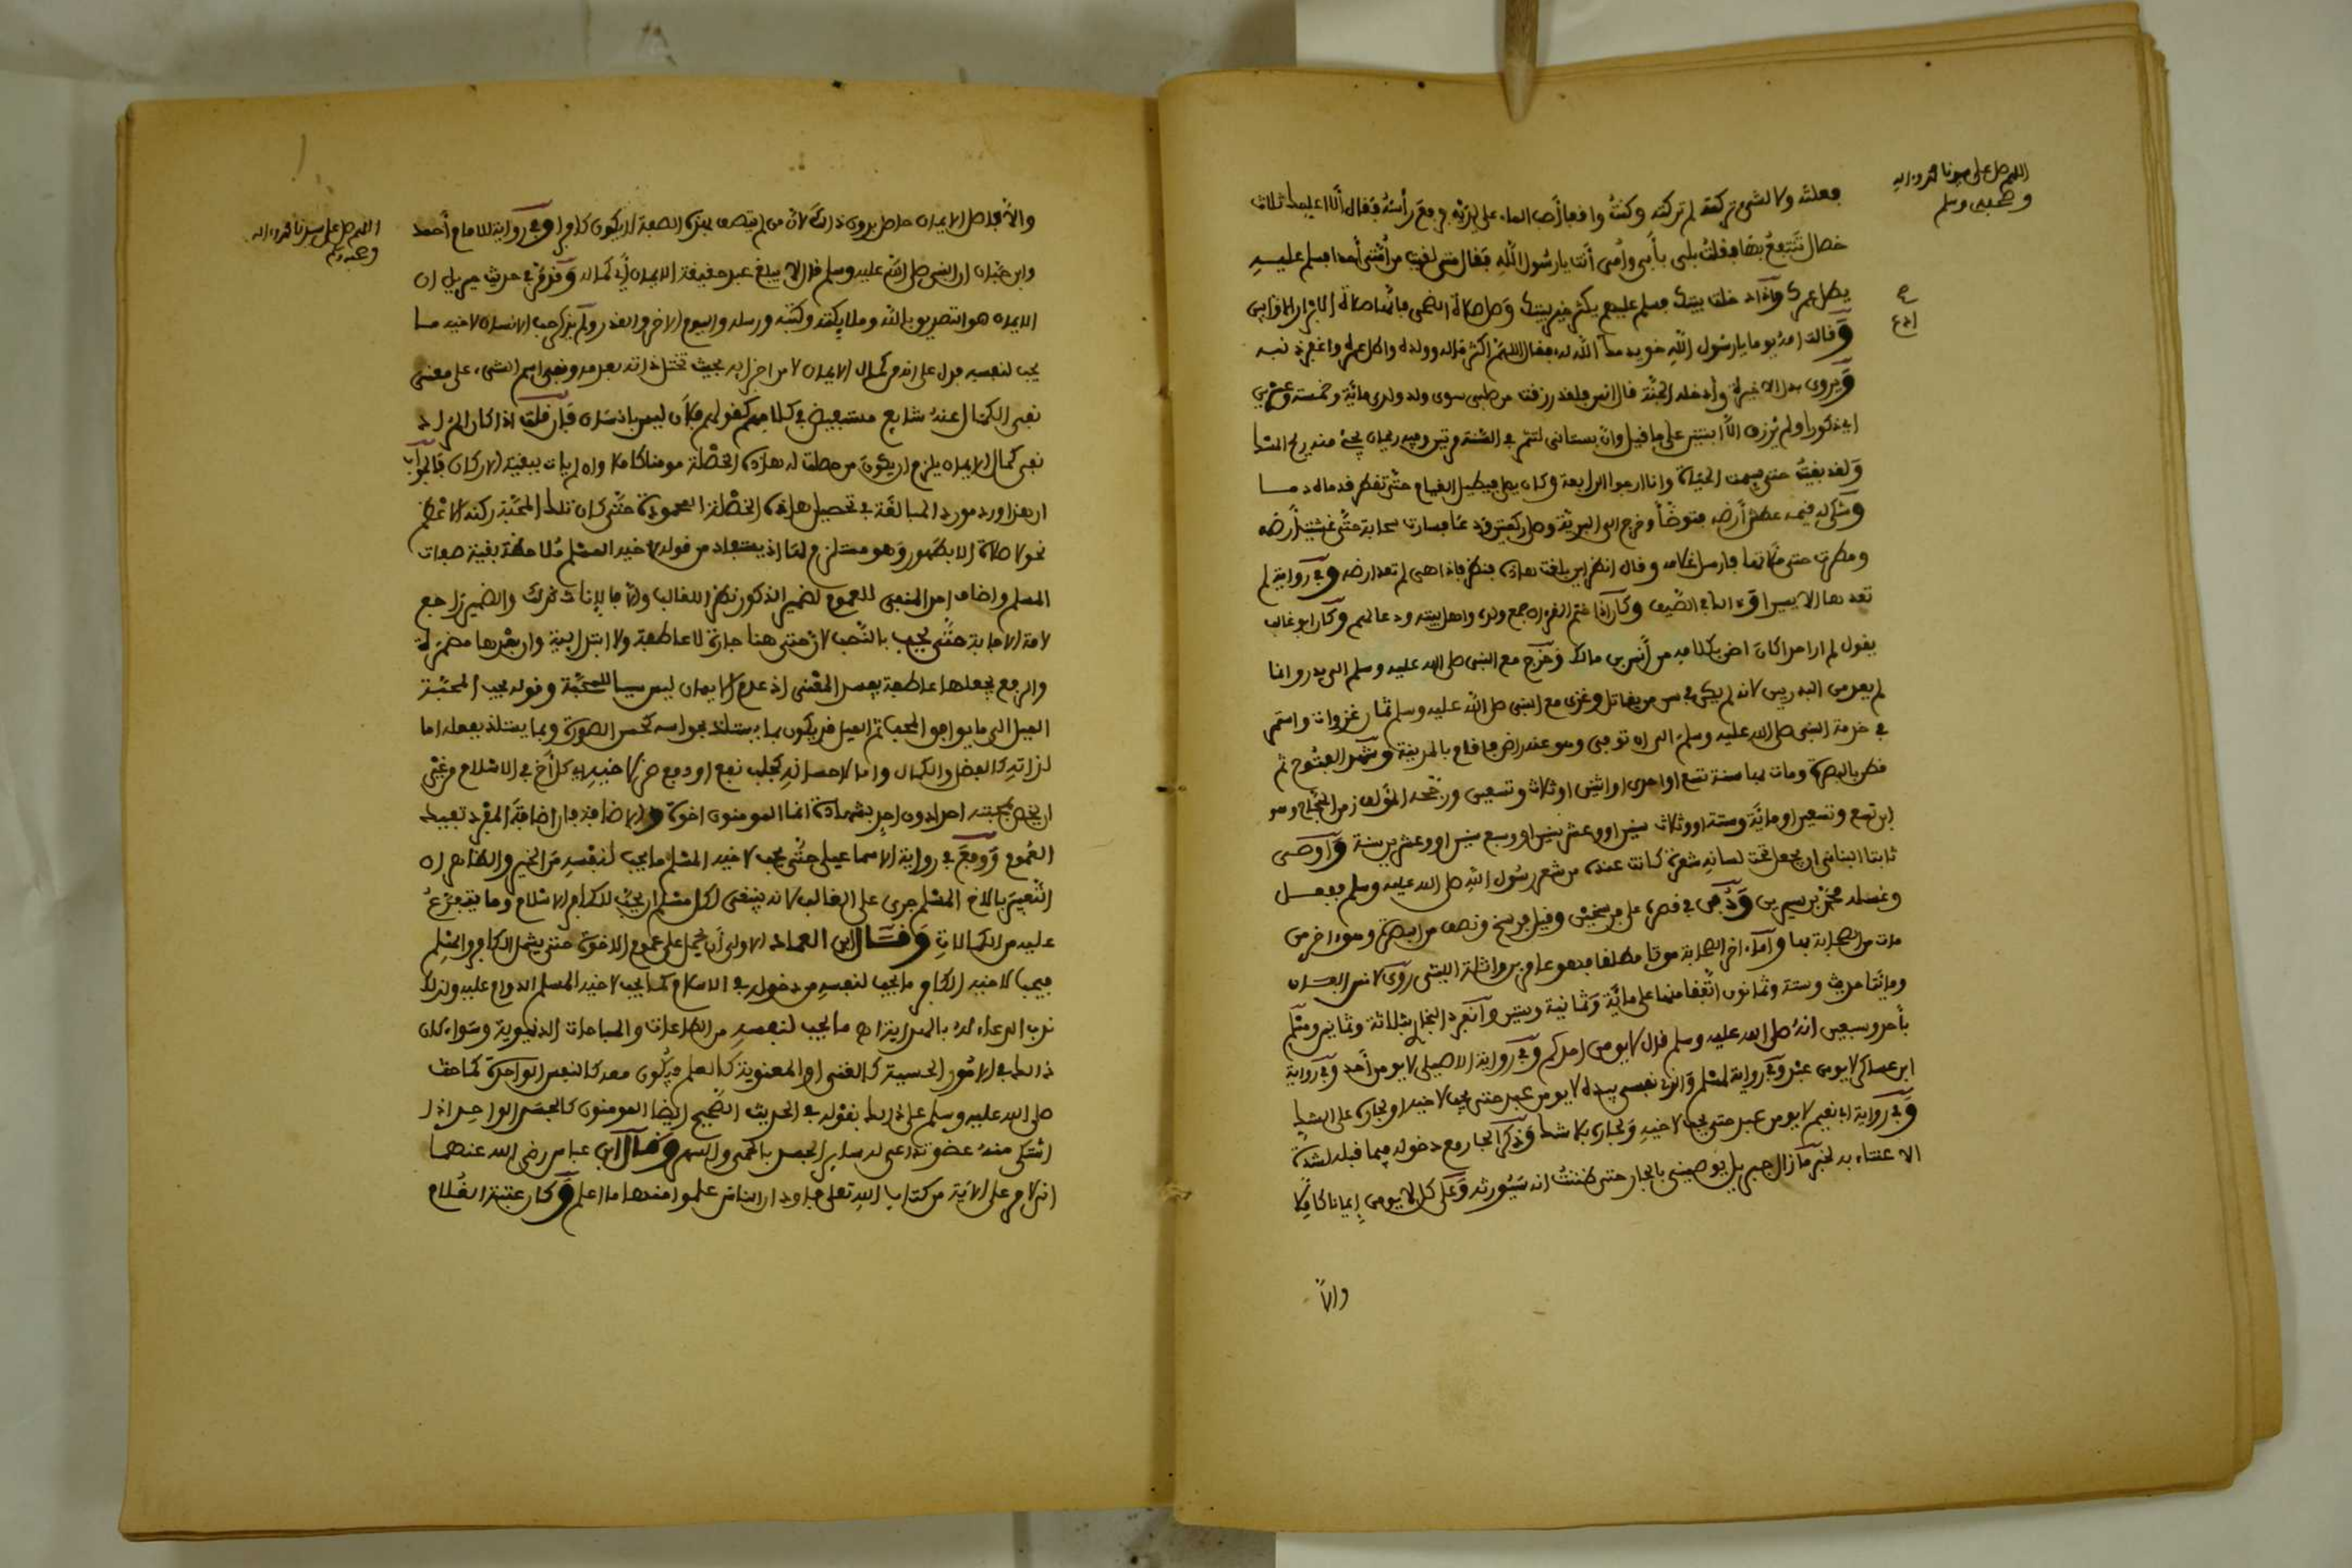 اللهم صل على سيدنا محمد وءاله
وصحبه وسلم
فعلته ولا لشيء تركته لم تركته وكنت واقفا أصب الماء على يديه فرفع رأسه فقال ألا أعلمك ثلاث
خصال تنتفع بها فقلت بلى بأبي وأمي أنت يا رسول الله فقال متى لقيت من أمتي أحدا فسلم عليه
يطل عمرك وإذا دخلت بيتك فسلم عليهم يكثر خير بيتك وصل صلاة الضحى فإنها صلاة الأبرار الأوابين
وقالت أمه يوما يا رسول الله خويدمك الله له فقال اللهم أكثر ماله وولده وأطل عمره واغفر ذنبه
ويروى بدل الأخيرة وأدخله الجنة قال أنس فلقد رزقت من صلبي سوى ولد ولدي مائة وخمسة وعشرين
أي ذكورا ولم يرزق إلا ابنتين على ما قيل وإن بستاني لتثمر في السنة مرتين وفيه ريحان يجيء منه ريح المسك
ولقد بقيت حتى سئمت الحياة وأنا أرجوا الرابعة وكان يصلي فيطيل القيام حتى تفطر قدماه دما
وشكى له قيمه عطش أرضه فتوضأ وخرج إلى البرية وصلى ركعتين ودعا فسارت سحابة حتى غشيت أرضه
ومطرت حتى ملأتها فأرسل غلامه وقال انظر أين بلغت هذه فنظر فإذا هي لم تعد أرضه وفي رواية لم
تعدها إلا يسيرا وذلك في الصيف وكان إذا ختم القرءان جمع ولده وأهل بيته ودعا لهم وكان أبو غالب
يقول لم أر أحدا كان أضن بكلامه من أنس بن مالك وخرج مع النبي صلى الله عليه وسلم إلى بدر وإنما
لم يعد من البدريين لأنه لم يكن في سن من يقاتل وغزى مع النبي صلى الله عليه وسلم ثمان غزوات واستمر
في خدمة النبي صلى الله عليه وسلم إلى أن توفي وهو عنه راض فأقام بالمدينة وشهد الفتوح ثم
قطن بالبصرة ومات بها سنة تسع أو إحدى أو اثنين أو ثلاث وتسعين ورجحه المؤلف زمن الحجاج وهو
ابن تسع وتسعين أو مائة وستة أو وثلاث سنين أو وعشر سنين أو وسبع سنين أو وعشرين سنة وأوصى
ثابتا البناني أن يجعل تحت لسانه شعرة كانت عنده من شعر رسول الله صلى الله عليه وسلم ففعل
وغسله محمد بن سيرين ودفن في قصره على فرسخين وقيل فرسخ ونصف من البصرة وهو ءاخر من
مات من الصحابة بها وأما ءاخر الصحابة موتا مطلقا فهو عامر بن واثلة الليثي روي لأنس ألفان
ومائتا حديث وستة وثمانون اتفقا منها على مائة وثمانية وستين وانفرد البخاري بثلاثة وثمانين ومسلم
بأحد وسبعين أنه صلى الله عليه وسلم قال لا يومن أحدكم وفي رواية الأصيلي لا يومن أحد وفي رواية
ابن عساكر لا يومن عبد وفي رواية لمسلم والذي نفسي بيده لا يومن عبد حتى يحب لأخيه أو لجاره على الشك
وفي رواية أبي نعيم لا يومن عبد حتى يحب لأخيه ولجاره بلا شك وذكر الجار مع دخوله فيما قبله لشدة
الاعتناء به لخبر ما زال جبريل يوصيني بالجار حتى ظننت أنه سيورثه وعلى كل لا يومن إيمانا كاملا
وإلا
اللهم صل على سيدنا محمد وءاله
وصحبه وسلم
وإلا فأصل الإيمان حاصل بدون ذلك لأن من لم يتصف بهذه الصفة لا يكون كافرا وفي رواية للإمام أحمد
وابن حبان أن النبي صلى الله عليه وسلم قال لا يبلغ عبد حقيقة الإيمان أي كماله وقد مر في حديث جبريل أن
الإيمان هو التصديق بالله وملائكته وكتبه ورسله واليوم الآخر والقدر ولم يذكر حب الإنسان لأخيه ما
يحب لنفسه فدل على أنه من كمال الإيمان لا من أجزائه بحيث تختل ذاته بعدمه ونفي اسم الشيء على معنى
نفي الكمال عنه شايع مستفيض في كلامهم كقولهم فلان ليس بإنسان فإن قلت إذا كان المراد
نفي كمال الإيمان يلزم أن يكون من حصلت له هذه الخصلة مومنا كاملا وإن لم يات ببقية الأركان فالجواب
أن هذا ورد مورد المبالغة في تحصيل هذه الخصلة المحمودة حتى كان تلك المحبة ركنه الأعظم
نحو لا صلاة إلا بطهور وهو مستلزم لها إذ يستفاد من قوله لأخيه المسلم ملاحظة بقية صفات
المسلم وأضاف أحد المنفي للعموم لضمير الذكور نظرا للغالب وإلا فالإناث كذلك والضمير راجع
لأمة الإجابة حتى يحب بالنصب لأن حتى هنا جارة لا عاطفة ولا ابتدائية وأن بعدها مضمرة
والرفع يجعلها عاطفة يفسد المعنى إذ عدم الإيمان ليس سببا للمحبة وقوله يحب المحبة
الميل إلى ما يوافق المحب ثم الميل قد يكون بما يستلذ بحواسه كحسن الصورة وبما يستلذ بعقله إما
لذاته كالفضل والكمال وإما لإحسانه كجلب نفع أو دفع ضر لأخيه أي كل أخ في الإسلام من غير
أن يخص بمحبته أحدا دون أحد بشهادة إنما المومنون إخوة والإضافة فإن إضافة المفرد تفيد
العموم ووقع في رواية الإسماعيلي حتى يحب لأخيه المسلم ما يحب لنفسه من الخير والظاهر أن
التعبير بالأخ المسلم جرى على الغالب لأنه ينبغي لكل مسلم أن يحب للكافر الإسلام وما يتفرع
عليه من الكمالات وقال ابن العماد الأولى أن يحمل على عموم الأخوة حتى يشمل الكافر والمسلم
فيحب لأخيه الكافر ما يحب لنفسه من دخوله في الإسلام كما يحب لأخيه المسلم الدوام عليه ولذلك
ندب الدعاء له بالهداية ما يحب لنفسه من الطاعات والمباحات الدنيوية وسواء كان
ذلك في الأمور الحسية كالغنى أو المعنوية كالعلم فيكون معه كالنفس الواحدة كما حث
صلى الله عليه وسلم على ذلك بقوله في الحديث الصحيح أيضا المومنون كالجسد الواحد إذا
اشتكى منه عضو تداعى له ساير الجسد بالحمى والسهر وقال ابن عباس رضي الله عنهما
إني لأمر على الآية من كتاب الله تعلى فأود أن الناس علموا منها ما أعلم وكان عتبة الغلام